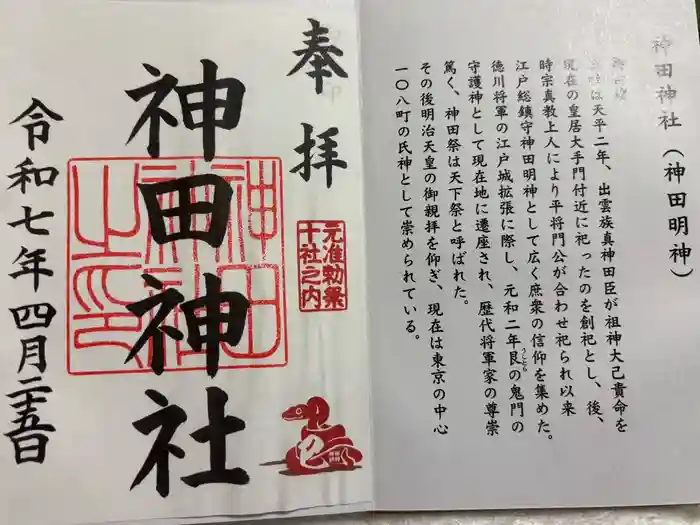 神田神社（神田明神）
社は天平二年、出雲族真神田臣が祖神大己貴命を
現在の皇居大手門付近に祀ったのを創祀とし、後、
時宗真教上人により平将門公が合わせ祀られ以来
江戸総鎮守神田明神として広く庶衆の信仰を集めた。
徳川将軍の江戸城拡張に際し、元和二年艮の鬼門の
うしとら
守護神として現在地に遷座され、歴代将軍家の尊崇
篤く、神田祭は天下祭と呼ばれた。
その後明治天皇の御親拝を仰ぎ、現在は東京の中心
一〇八町の氏神として崇められている。
奉拝
元准勅祭
十社之内
神田神社
神田
神社
之印
令和七年四月二十五日